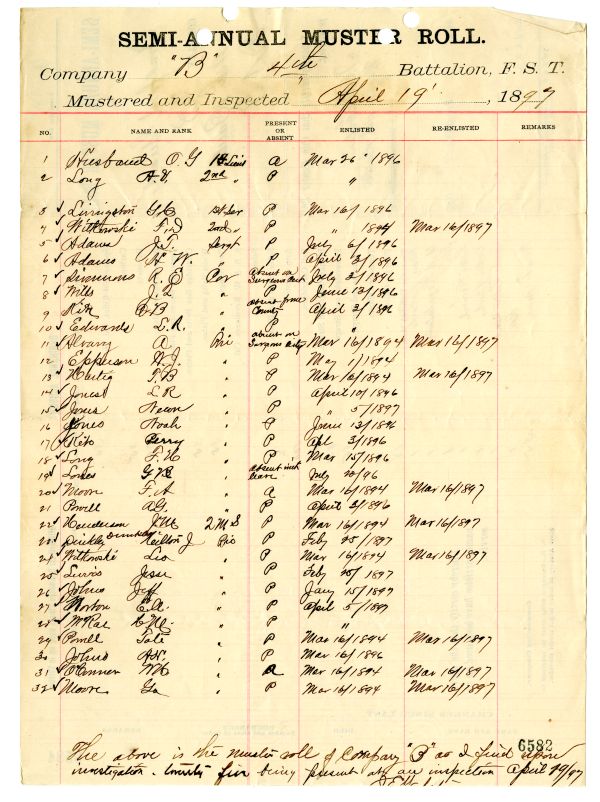 SEMI-ANNUAL MUSTER ROLL.
Company "B" 4th Battalion, F. S. T.
Mustered and Inspected April 19 , 1897
NO. NAME AND RANK PRESENT OR ABSENT ENLISTED RE-ENLISTED REMARKS
1 Husband O. G 1st Lieut a Mar 26 1896
2 Long 2nd " P "
3 Livingston 1st Ser P Mar 16/1896
4 Witkowski 2nd " P " 1894 Mar 16/1897
5 Adams J. T. Sergt P July 6/1896
6 Adams H. W. " P April 3/1896
7 Simmons R. E Cor absent on July 3/1896
8 Wills J. L " P June 13/1896
9 absent from County April 3/1896
10 Edwards L. R. " P "
11 Alvarez A Pri absent on Mar 16/1894 Mar 16/1897
12 Epperson W. J " P May 1/1894
13 Hartig F. B " P Mar 16/1894 Mar 16/1897
14 Jones L R " P April 10/1896
15 Jones " P " 5/1897
16 Jones Noah " P June 13/1896
17 Perry " P Apl 3/1896
18 Long F. H " P Mar 15/1896
19 " absent leave July 20/96
20 Moore F. A " a Mar 16/1894 Mar 16/1897
21 Powell A G. " P April 3/1896
22 Henderson J. M 2 M S P Mar 16/1894 Mar 16/1897
23 J Pri P Feby 25/1897
24 Witkowski Leo " P Mar 16/1894 Mar 16/1897
25 Jesse " P Feby 20/1897
26 Johns Jeff " P Jany 15/1897
27 Norton " P April 5/1897
28 McRae " P "
29 Powell Tate " P Mar 16/1894 Mar 16/1897
30 Johns " P Mar 16/1896
31 O'Conner " a Mar 16/1894 Mar 16/1897
32 Moore " P Mar 16/1894 Mar 16/1897
6582
The above is the muster roll of Company "B" as I find upon
investigation. twenty five being present at inspection April 19/97